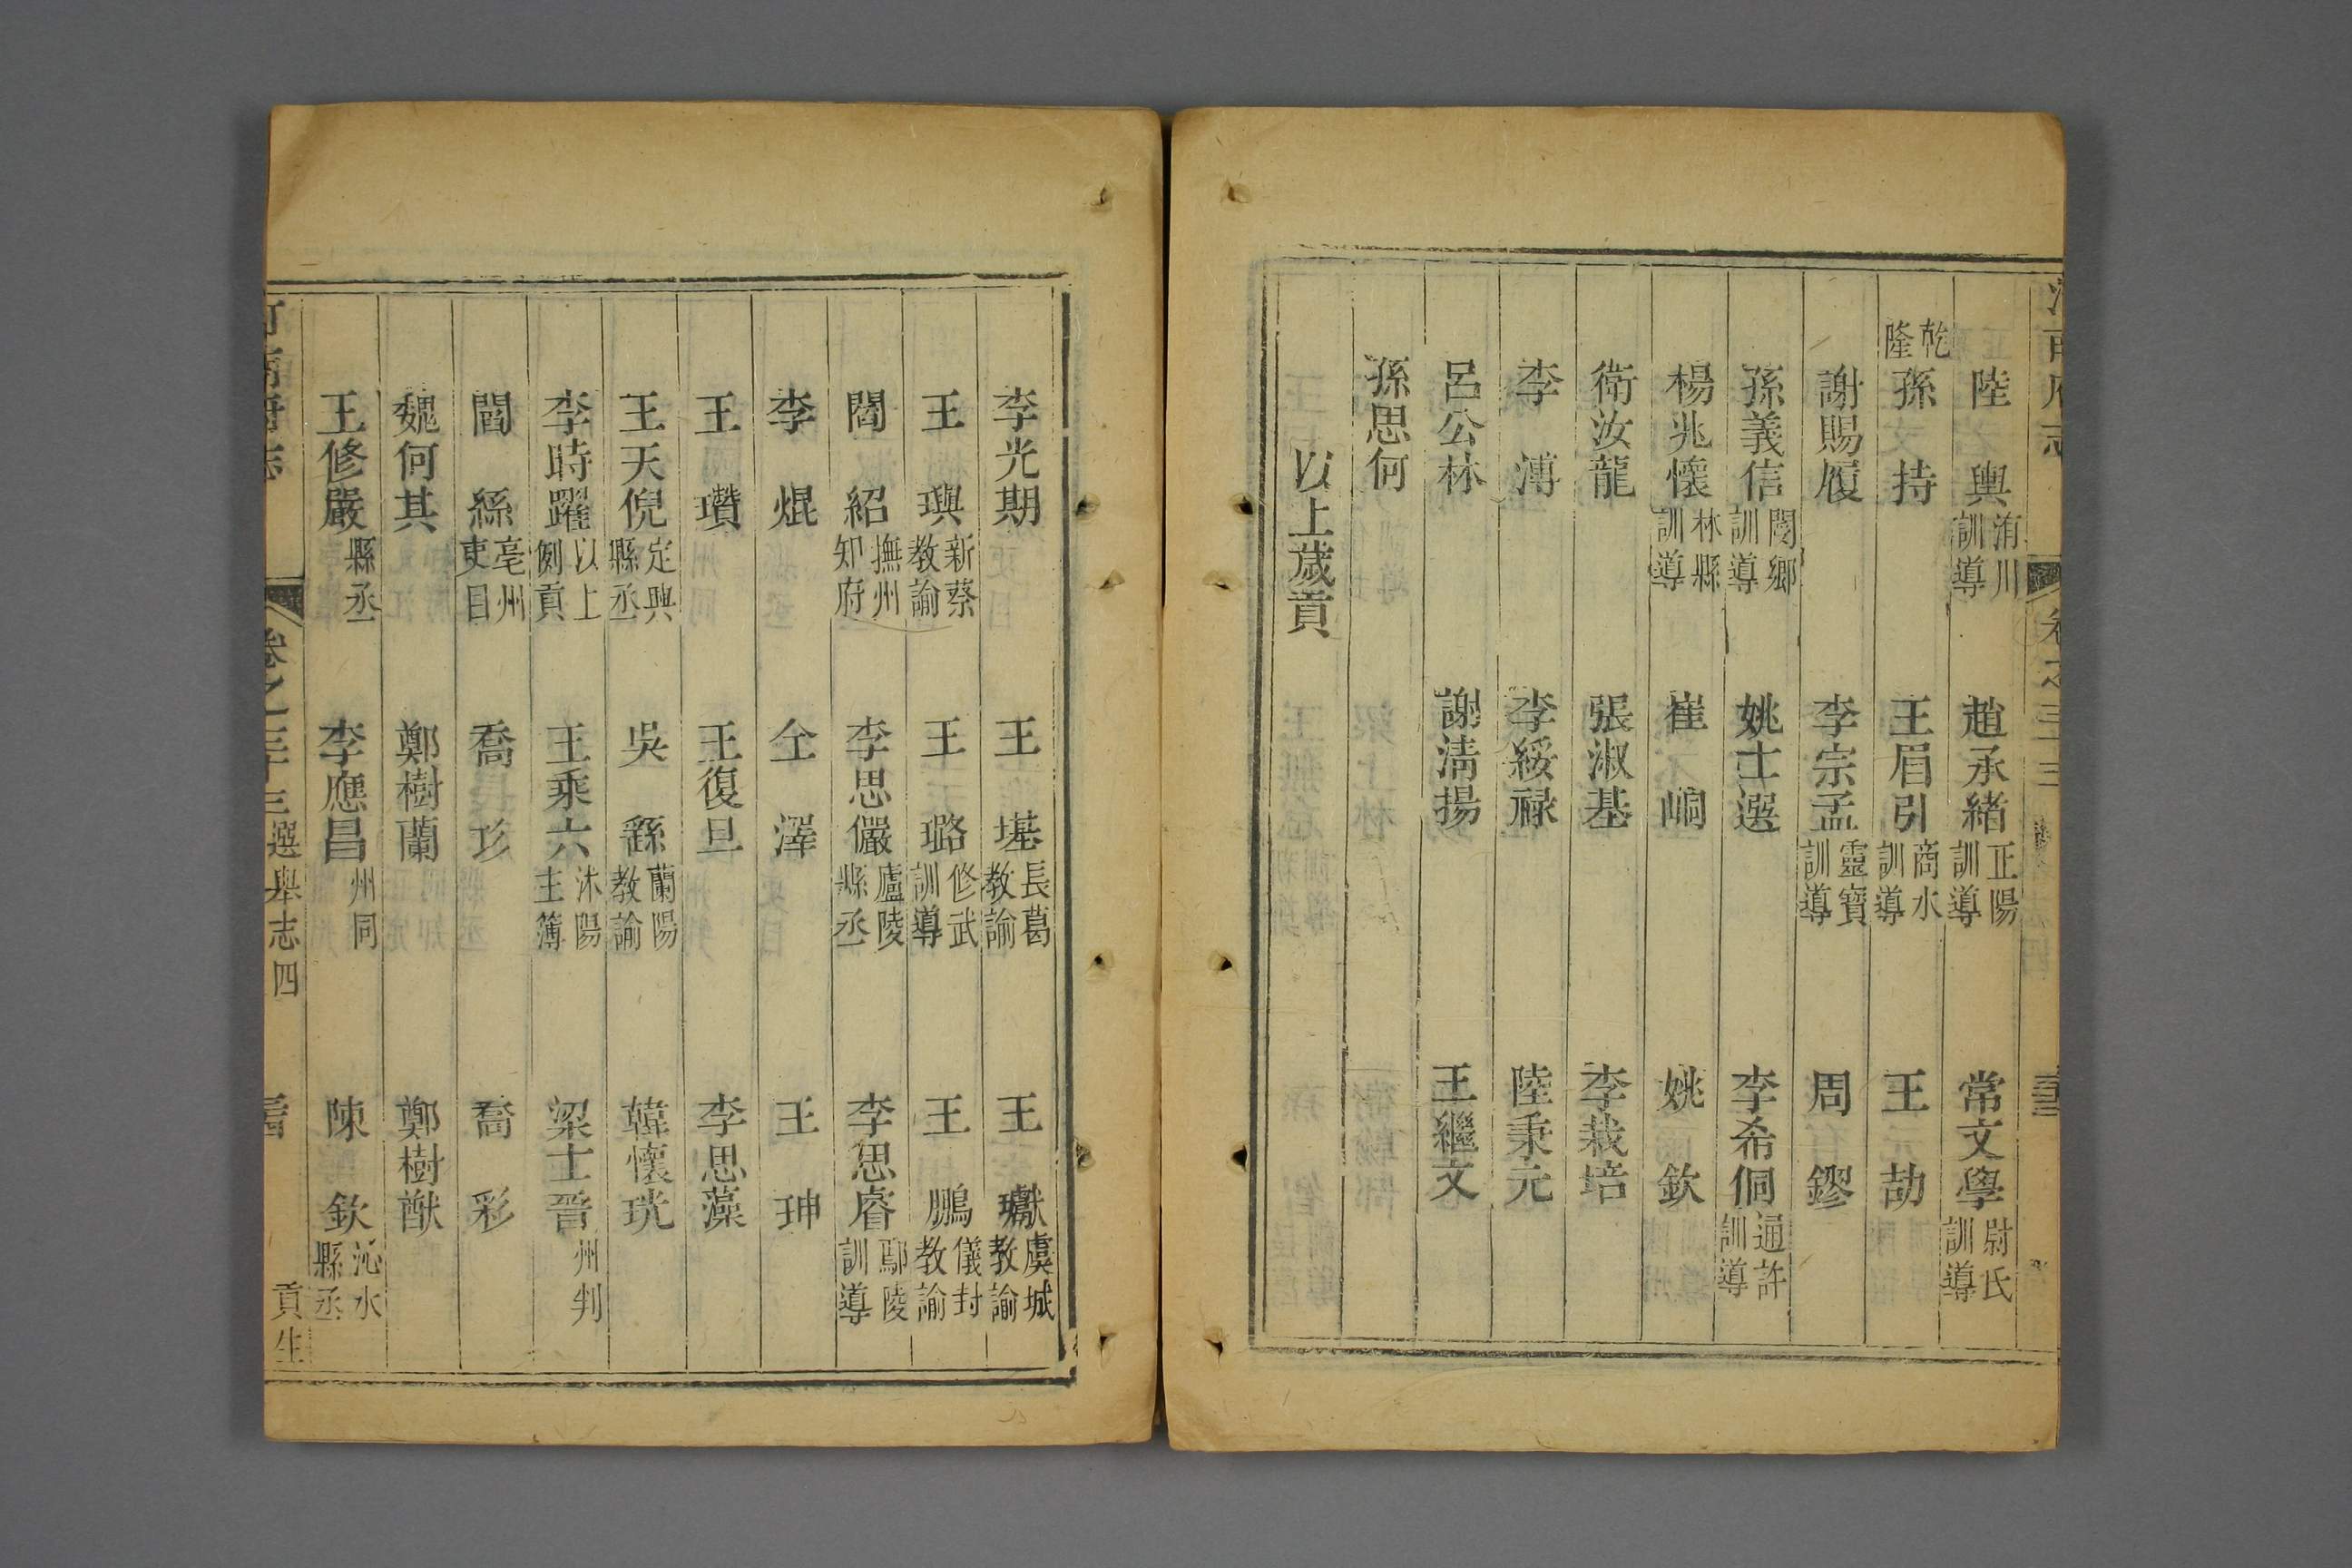 陸輿洧川訓導 趙承緒正陽訓導 常文學尉氏訓導
乾隆孫持 王眉引商水訓導 王劼
謝賜履 李宗孟靈寶訓導 周鏐
孫義信閿鄉訓導 姚士選 李希侗通許訓導
楊兆懷林縣訓導 崔峒 姚欽
衛汝龍 張淑基 李栽培
李溥 李綏祿 陸秉元
呂公林 謝清揚 王繼文
孫思何
以上歲貢
李光期 王基長葛教諭 王瓛虞城教諭
王璵新蔡教諭 王璐修武訓導 王鵬儀封教諭
閻紹撫州知府 李思儼廬陵縣丞 李思睿鄢陵訓導
李焜 仝澤 王珅
王瓚 王復旦 李思藻
王天倪定興縣丞 吳繇蘭陽教諭 韓懷珖
李時躍以上例貢 王乘六沐陽主簿 梁士晉州判
閻繇亳州吏目 喬珍 喬彩
魏何其 鄭樹蘭 鄭樹猷
王修嚴縣丞 李應昌州同 陳欽沁水縣丞
河南府志 卷之三十三 選舉志四 貢生